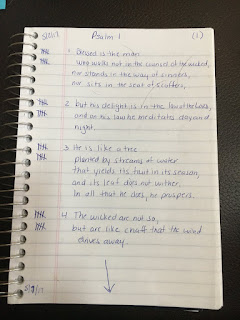 Psalm 1 (1)
1 Blessed is the man
who walks not in the counsel of the wicked,
nor stands in the way of sinners,
nor sits in the seat of scoffers,
2 but his delight is in the law of the Lord,
and on his law he meditates day and
night.
3 He is like a tree
planted by streams of water
that yields its fruit in its season,
and its leaf does not wither.
In all that he does, he prospers.
4 The wicked are not so,
but are like chaff that the wind
drives away.